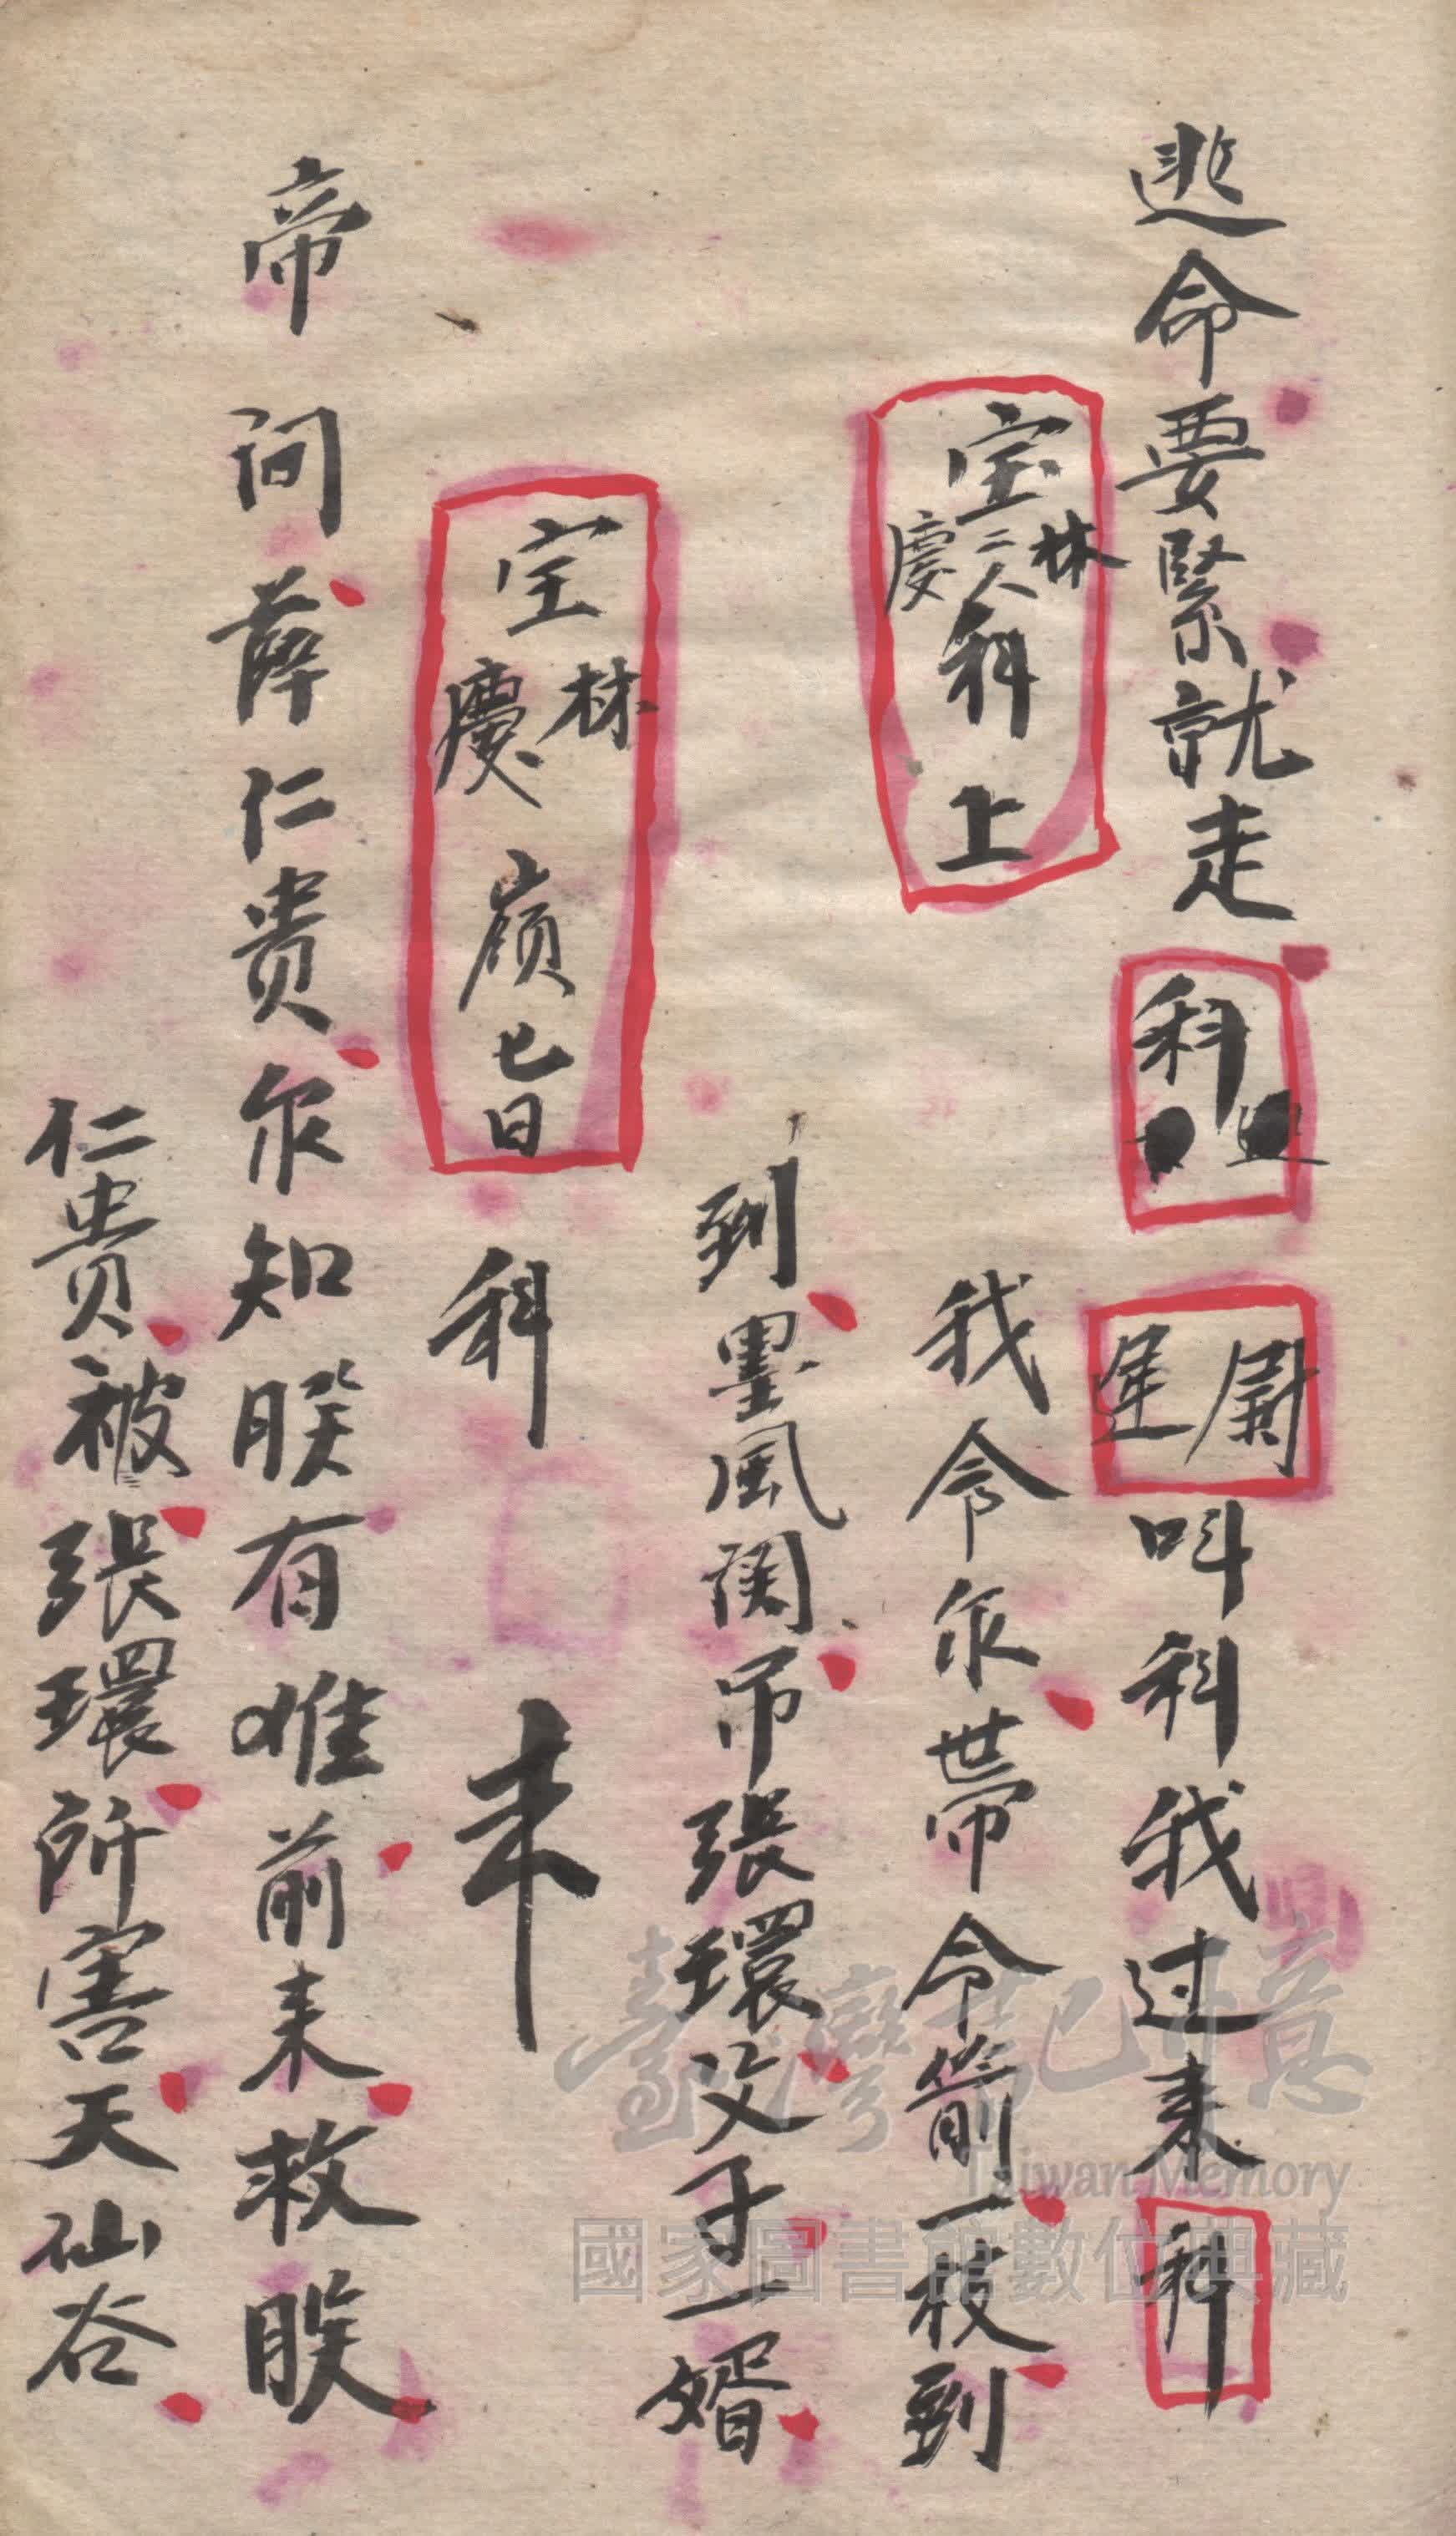 逃命要緊就走 科 尉遲 叫科我过来 科
宝林慶二人科上 我令尔帶令箭一枝到
到墨風関吊張環父子一婿
宝林慶領七日 科 来
帝 问薛仁贵尔知朕有难前来救朕
仁贵被張環所害天仙谷
臺灣記憶
Taiwan Memory
國家圖書館數位典藏